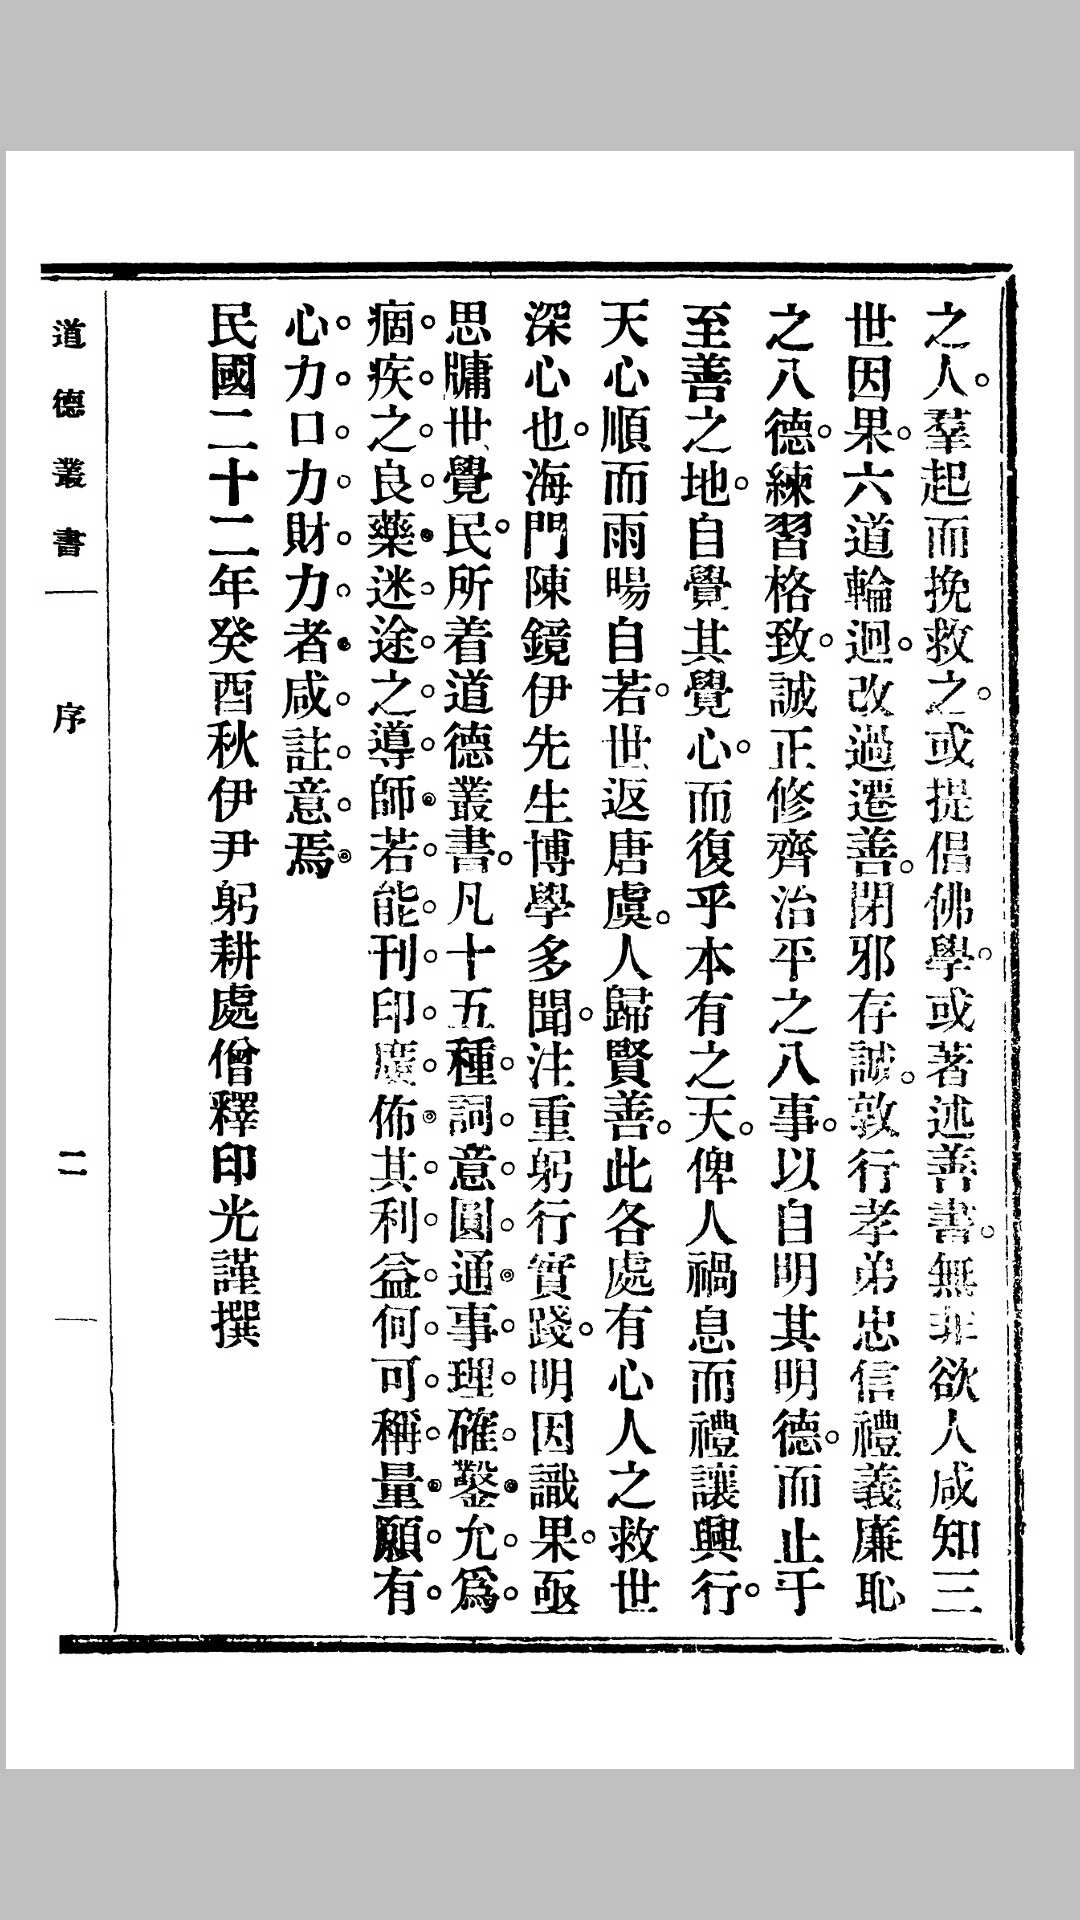 之人。羣起而挽救之。或提倡佛學。或著述善書。無非欲人咸知三
世因果。六道輪迴。改過遷善。閉邪存誠。敦行孝弟忠信禮義廉恥
之八德。練習格致。誠正修齊治平之八事。以自明其明德。而止于
至善之地。自覺其覺心。而復乎本有之天。俾人禍息而禮讓興行。
天心順而雨暘自若。世返唐虞。人歸賢善。此各處有心人之救世
深心也。海門陳鏡伊先生博學多聞。注重躬行實踐。明因識果。亟
思牖世覺民。所着道德叢書。凡十五種。詞意圓通。事理確鑿。允爲
痼疾之良藥。迷途之導師。若能刊印廣佈。其利益何可稱量。願有
心力口力財力者。咸註意焉。
民國二十二年癸酉秋伊尹躬耕處僧釋印光謹撰
道德叢書
序
二